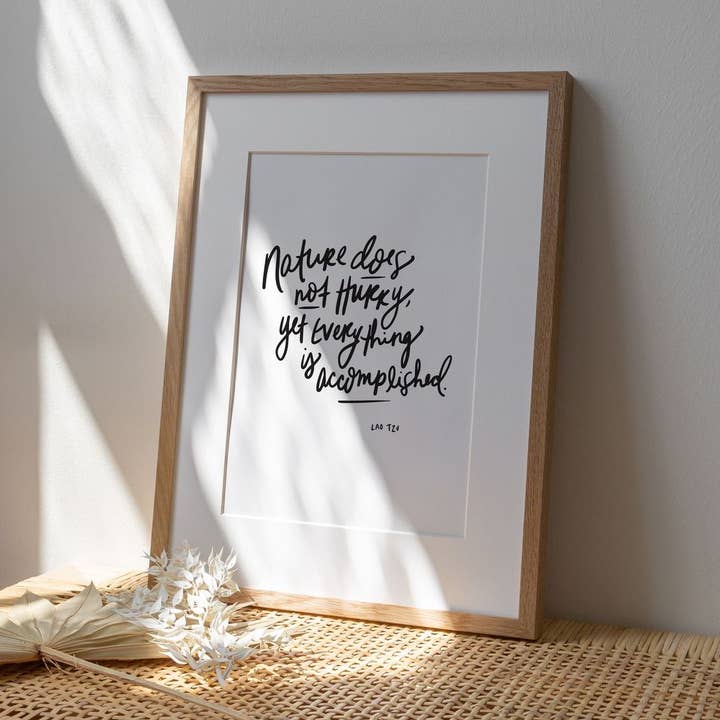 Nature does
not Hurry,
yet Everything
is accomplished.
LAO TZU